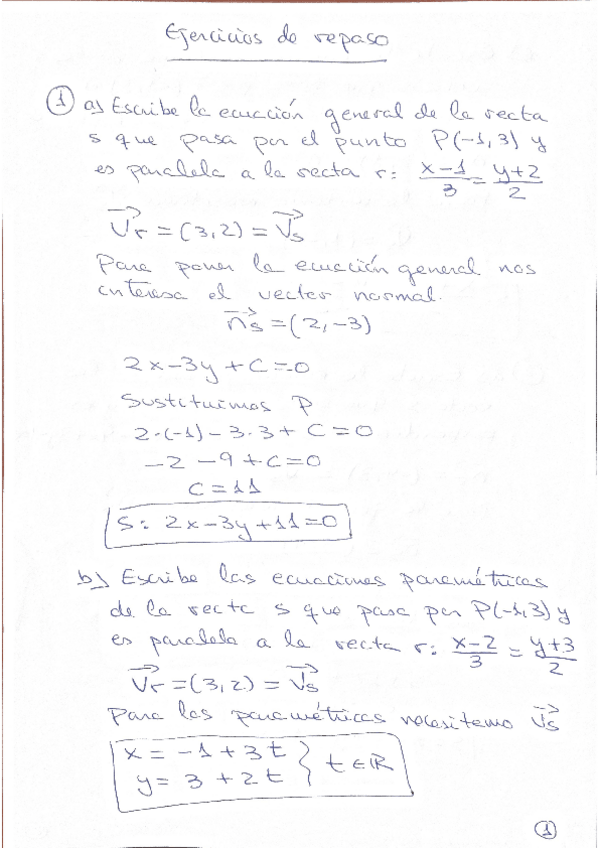 Ejercicios de repaso
① a) Escribe la ecuación general de la recta
s que pasa por el punto P(-1,3) y
es paralela a la recta r: (x-1)/3 = (y+2)/2
V⃗r = (3,2) = V⃗s
Para poner la ecuación general nos
interesa el vector normal.
n⃗s = (2,-3)
2x-3y+C=0
Sustituimos P
2·(-1)-3·3+C=0
-2-9+C=0
C=11
s: 2x-3y+11=0
b) Escribe las ecuaciones paramétricas
de la recta s que pasa por P(-1,3) y
es paralela a la recta r: (x-2)/3 = (y+3)/2
V⃗r = (3,2) = V⃗s
Para las paramétricas necesitamo V⃗s
x = -1+3t
y = 3+2t } t∈ℝ
①